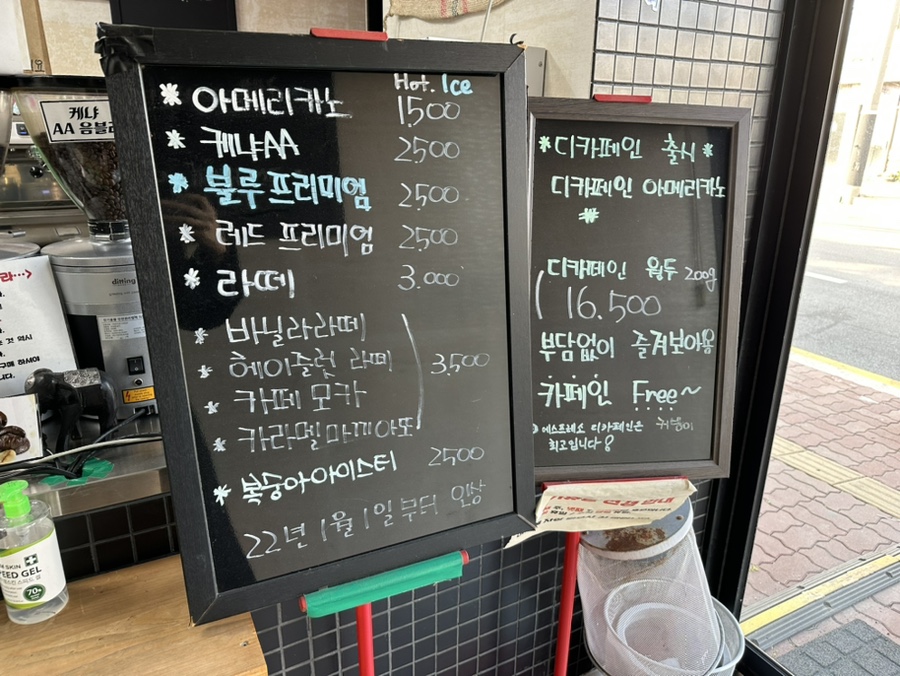 Hot. Ice
* 아메리카노 1,500
* 케냐AA 2,500
* 블루 프리미엄 2,500
* 레드 프리미엄 2,500
* 라떼 3,000
* 바닐라라떼
* 헤이즐럿 라떼 3,500
* 카페 모카
* 카라멜마끼아또
* 복숭아아이스티 2500
22년 1월 1일 부터 인상
* 디카페인 출시 *
디카페인 아메리카노
*
디카페인 원두 200g
16.500
부담없이 즐겨보아용
카페인 Free~
에스프레소 디카페인은
최고입니다
케냐
AA
SKIN
EED GEL
70%
ditting